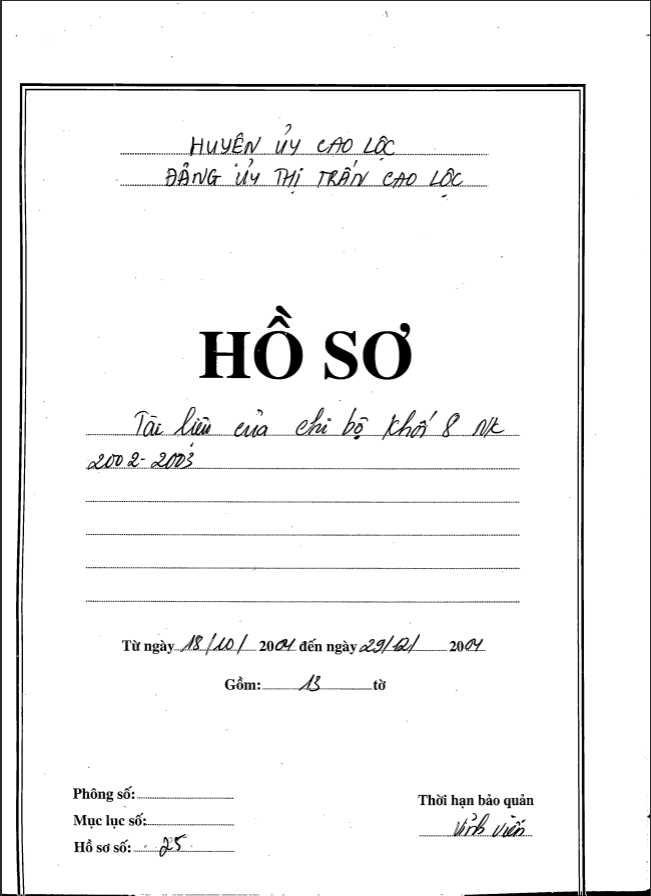 HUYỆN ỦY CAO LỘC
ĐẢNG ỦY THỊ TRẤN CAO LỘC
HỒ SƠ
Tài liệu của chi bộ khối 8 NK
2002-2003
Từ ngày 18/10/ 2001 đến ngày 29/12/ 2001
Gồm: 13 tờ
Phông số:
Mục lục số:
Hồ sơ số: 25
Thời hạn bảo quản
Vĩnh viễn